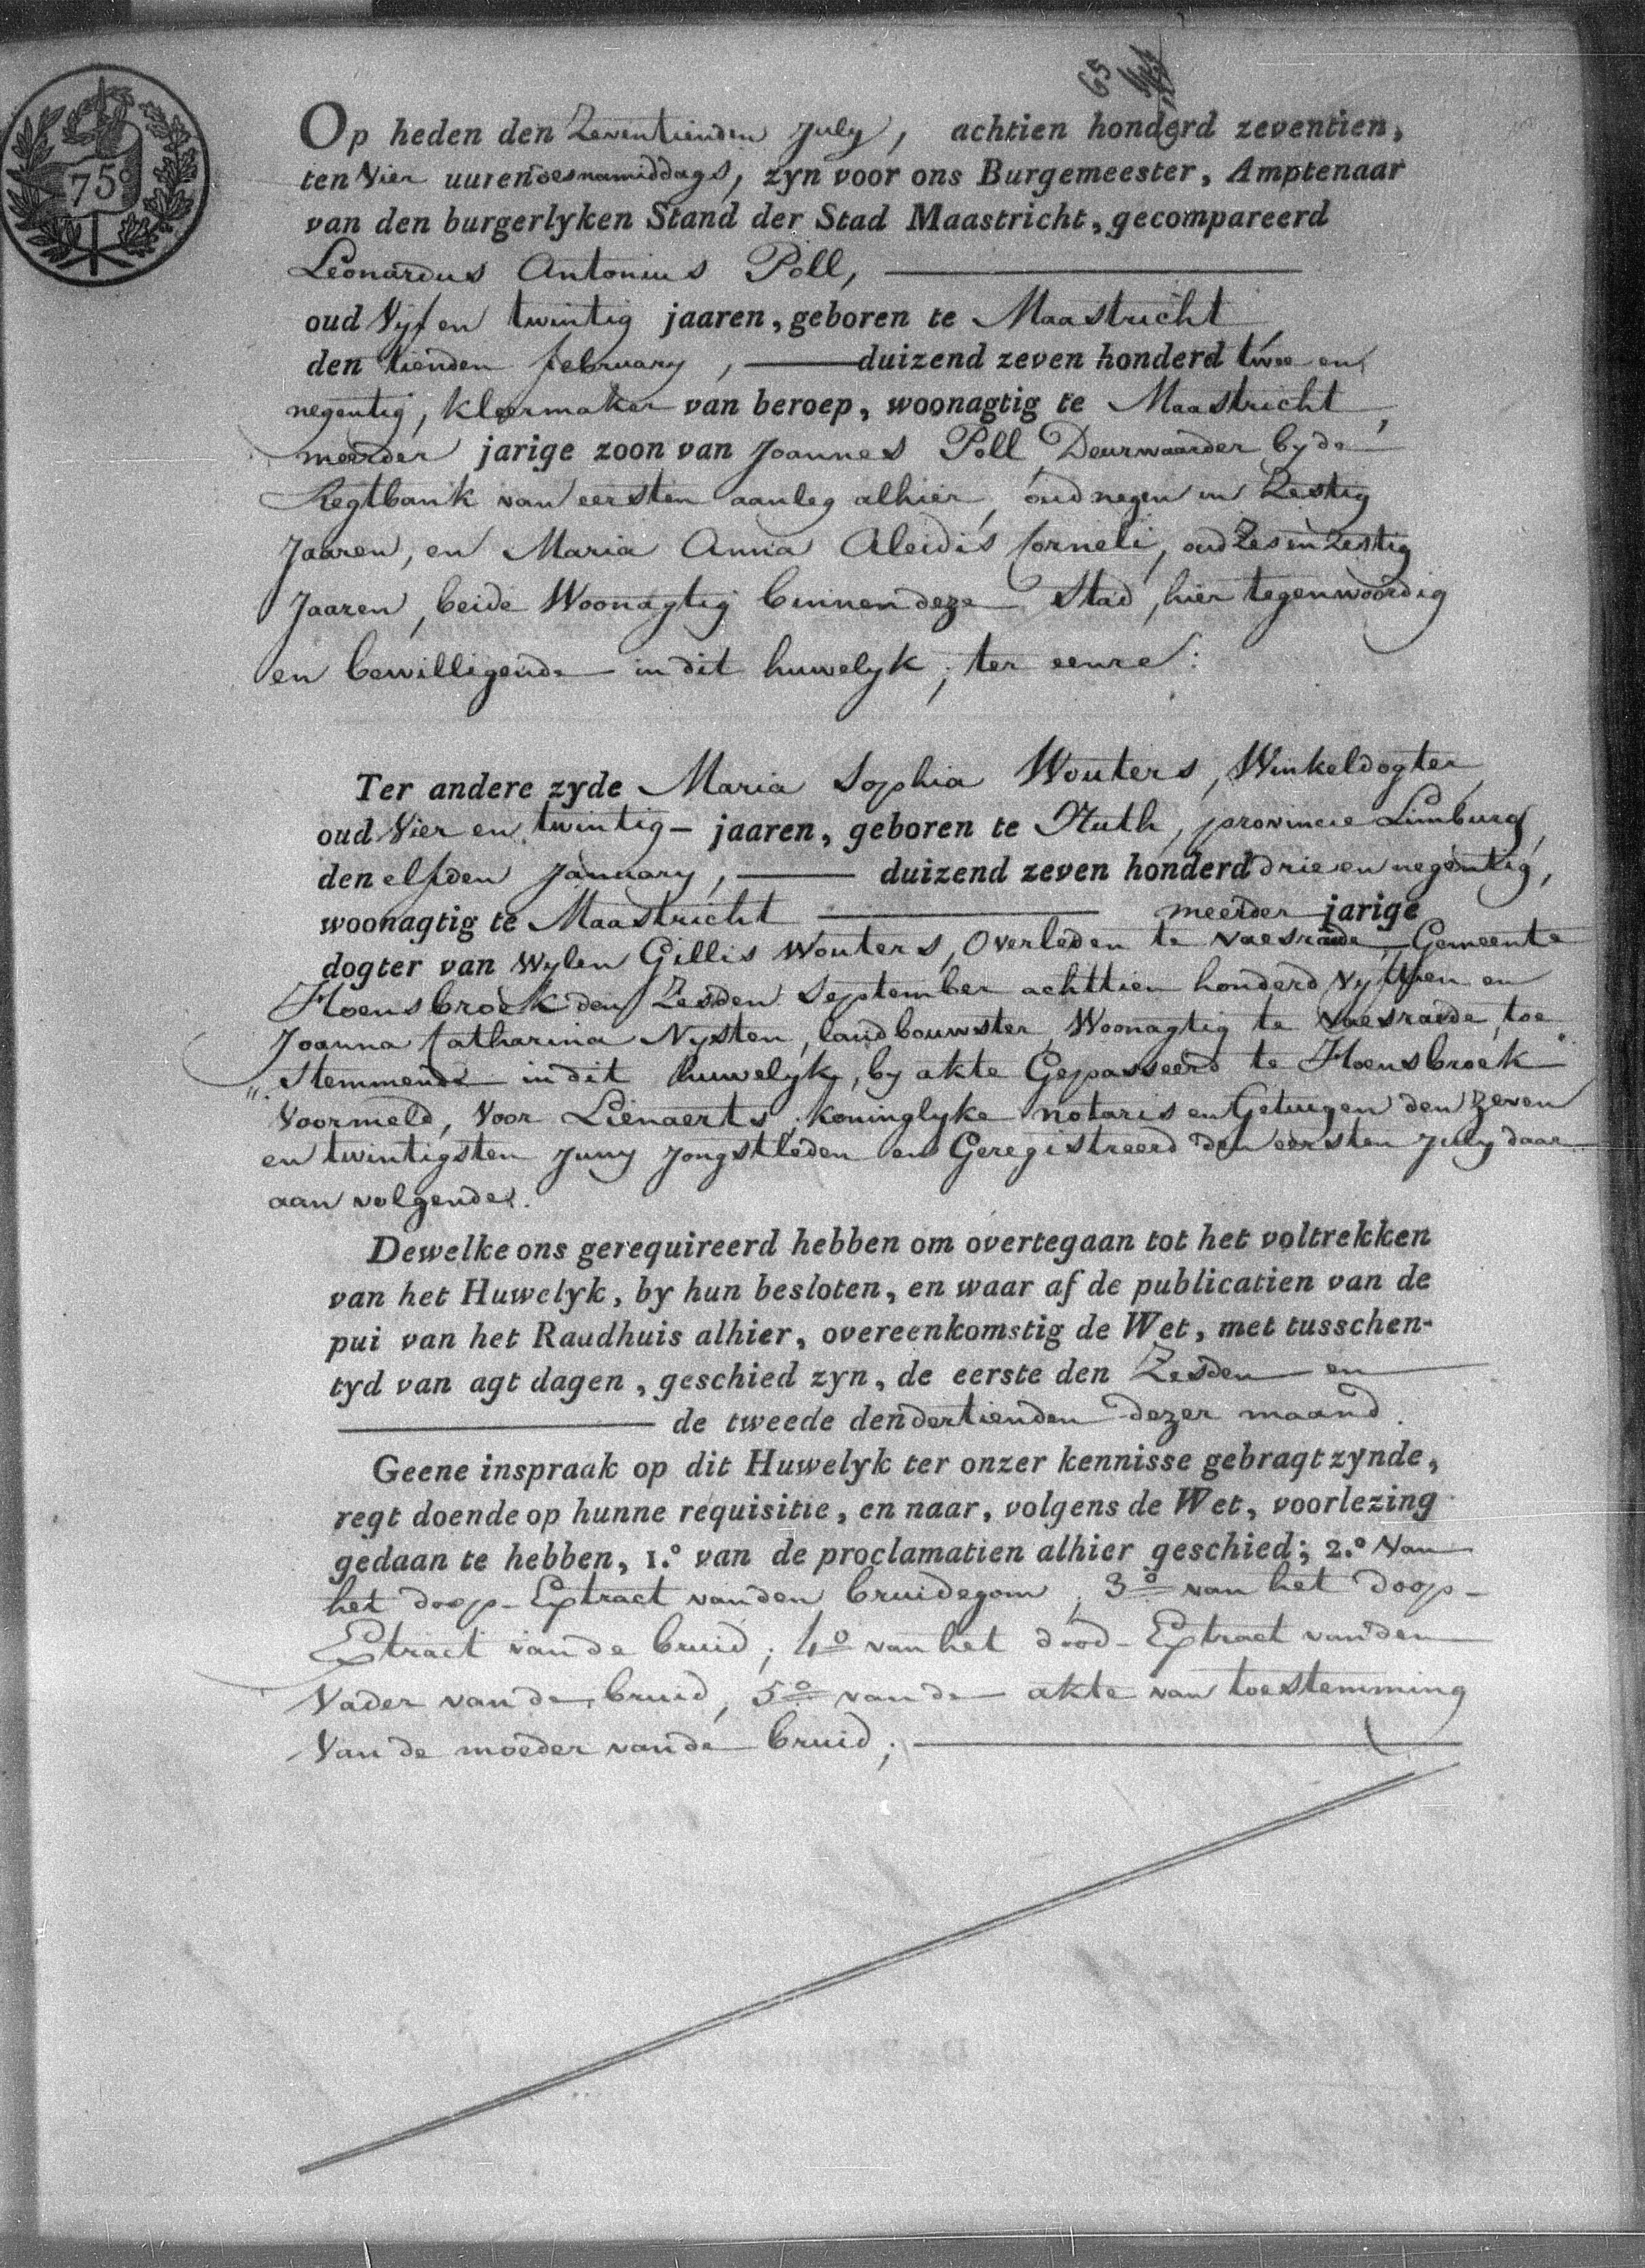 65
75c
Op heden den Zeventienden July, achtien honderd zeventien,
ten Vier uuren desnamiddags, zyn voor ons Burgemeester, Amptenaar
van den burgerlyken Stand der Stad Maastricht, gecompareerd
Leonardus Antonius Poll,
oud Vyf en twintig jaaren, geboren te Maastricht
den tienden february, duizend zeven honderd twee en
negentig, kleermaker van beroep, woonagtig te Maastricht,
meerder jarige zoon van Joannes Poll Deurwaarder by de
Regtbank van eersten aanleg alhier, oud negen en Zestig
Jaaren, en Maria Anna Aleidis Corneli, oud Zes en Zestig
Jaaren, beide Woonagtig binnen deze Stad, hier tegenwoordig
en bewilligende in dit huwelyk; ter eenre:
Ter andere zyde Maria Sophia Wouters, Winkeldogter,
oud Vier en twintig jaaren, geboren te Nuth, provincie Limburg,
den elfden January, duizend zeven honderd drie en negentig,
woonagtig te Maastricht meerder jarige
dogter van wylen Gillis Wouters, Overleden te Vaesraede, Gemeente
Hoensbroek den Zesden September achttien honderd Vyftien en
Joanna Catharina Nysten, landbouwster, Woonagtig te Vaesraede, toe
"Stemmende in dit huwelyk, by akte Gepasseerd te Hoensbroek
Voormeld, Voor Lienaerts, koninglyke notaris en Getuigen den zeven
en twintigsten Juny Jongstleden en Geregistreerd den eersten July daar
aan volgende.
Dewelke ons gerequireerd hebben om overtegaan tot het voltrekken
van het Huwelyk, by hun besloten, en waar af de publicatien van de
pui van het Raadhuis alhier, overeenkomstig de Wet, met tusschen-
tyd van agt dagen, geschied zyn, de eerste den Zesden en
de tweede den dertienden dezer maand.
Geene inspraak op dit Huwelyk ter onzer kennisse gebragt zynde,
regt doende op hunne requisitie, en naar, volgens de Wet, voorlezing
gedaan te hebben, 1.° van de proclamatien alhier geschied; 2.° Van
het doop-Extract van den bruidegom, 3° van het doop-
Extract van de bruid; 4° van het dood-Extract van den
Vader van de bruid, 5° van de akte van toestemming
Van de moeder van de bruid;